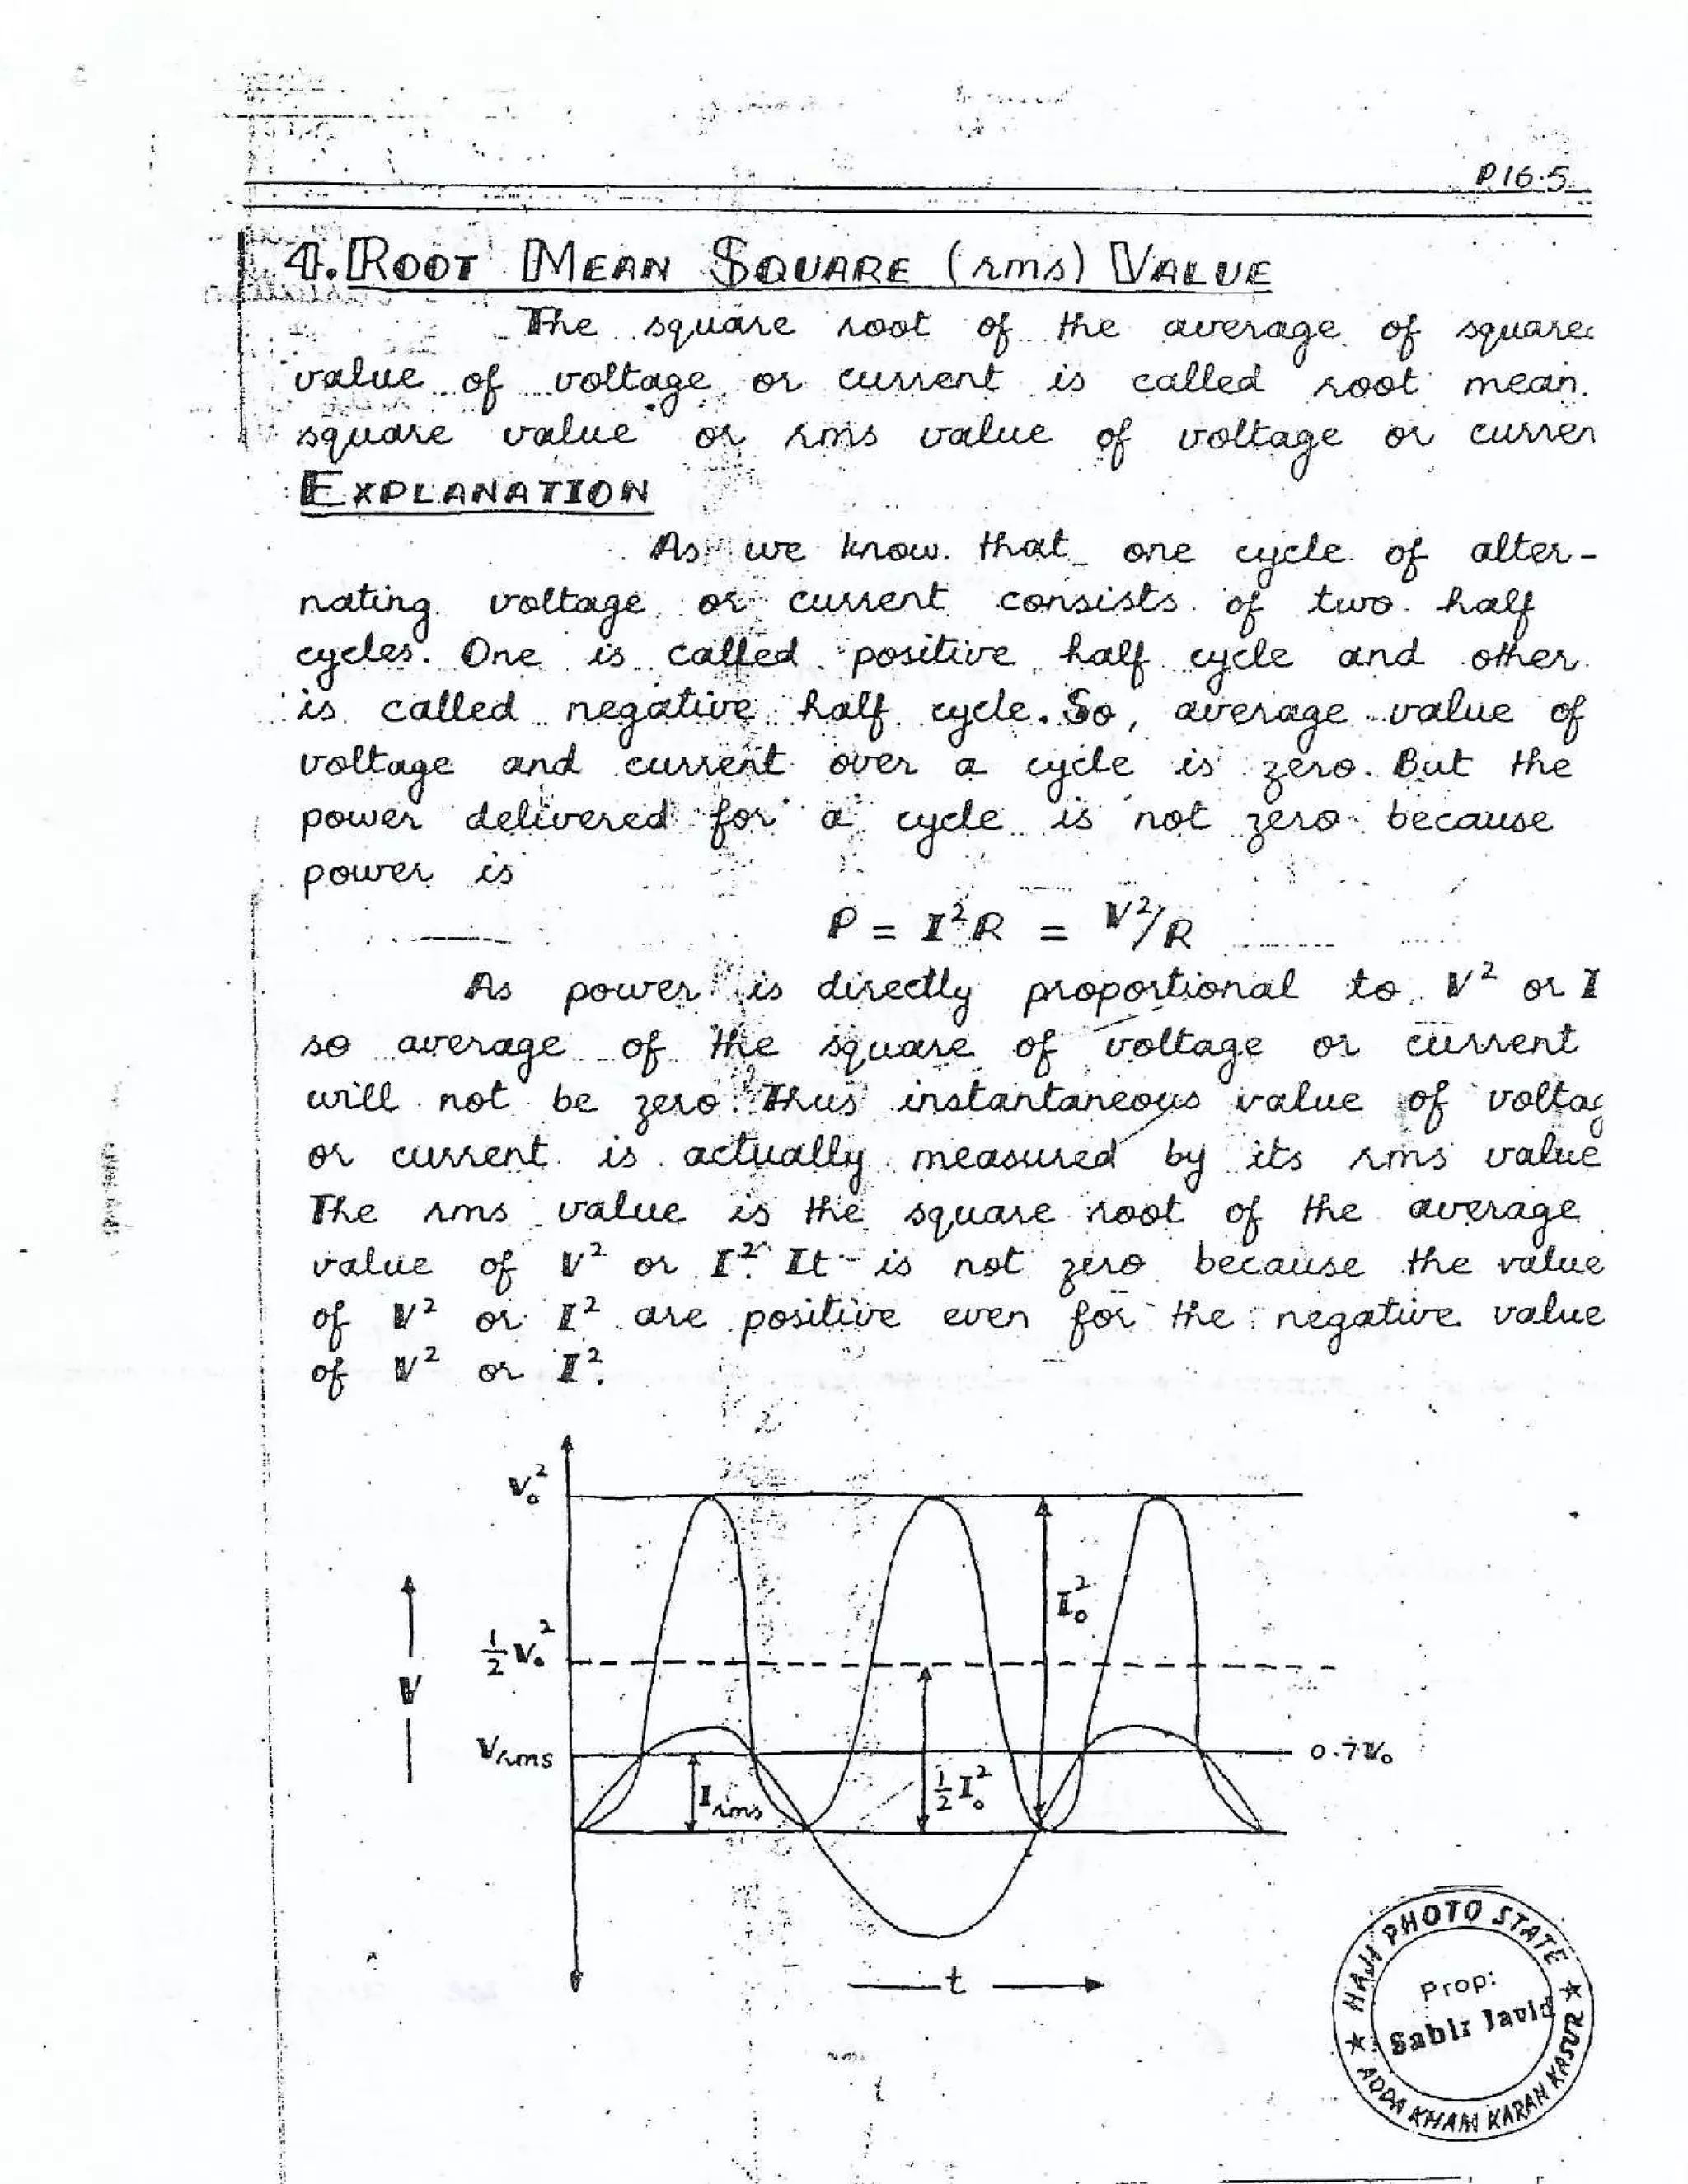 P.16.5
4. ROOT MEAN SQUARE (rms) VALUE
The square root of the average of square
value of voltage or current is called root mean.
square value or rms value of voltage or curren
EXPLANATION
As we know that one cycle of alter-
nating voltage or current consists of two half
cycles. One is called positive half cycle and other
is called negative half cycle. So, average value of
voltage and current over a cycle is zero. But the
power delivered for a cycle is not zero because
power is
P = I²R = V²/R
As power is directly proportional to V² or I
so average of the square of voltage or current
will not be zero. Thus instantaneous value of voltag
or current is actually measured by its rms value
The rms value is the square root of the average
value of V² or I². It is not zero because the value
of V² or I² are positive even for the negative value
of V² or I².
V₀²
I₀²
½V₀²
V
Vrms
0.7V₀
Irms
½I₀²
t
HAJI PHOTO STATE
Prop:
Sabir Javid
ADDA KHAM KARAN KASUR